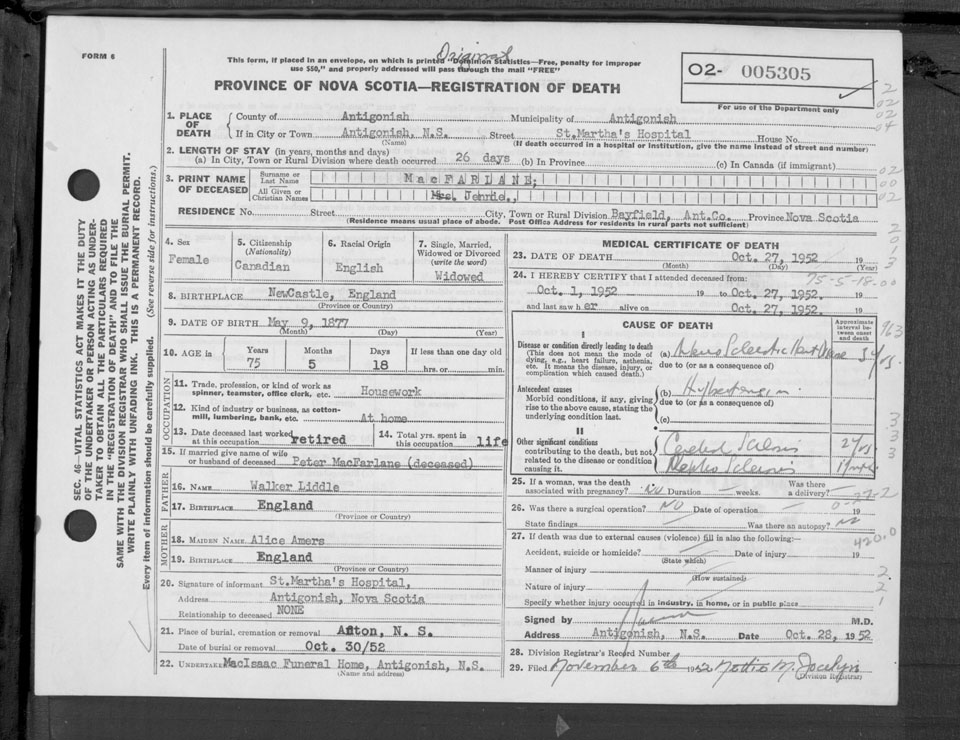 FORM 6
Original
This form, if placed in an envelope, on which is printed "Dominion Statistics—Free, penalty for improper
use $50," and properly addressed will pass through the mail "FREE"
PROVINCE OF NOVA SCOTIA—REGISTRATION OF DEATH
O2- 005305
For use of the Department only
1. PLACE OF DEATH
County of Antigonish Municipality of Antigonish
If in City or Town Antigonish, N.S. Street St.Martha's Hospital House No.
(Name) (If death occurred in a hospital or institution, give the name instead of street and number)
2. LENGTH OF STAY (in years, months and days)
(a) In City, Town or Rural Division where death occurred 26 days (b) In Province (c) In Canada (if immigrant)
3. PRINT NAME OF DECEASED
Surname or Last Name MacFARLANE,
All Given or Christian Names Mrs. Jennie.,
RESIDENCE No. Street City, Town or Rural Division Bayfield, Ant.Co. Province Nova Scotia
(Residence means usual place of abode. Post Office Address for residents in rural parts not sufficient)
4. Sex
Female
5. Citizenship
(Nationality)
Canadian
6. Racial Origin
English
7. Single, Married, Widowed or Divorced
(write the word)
Widowed
8. BIRTHPLACE NewCastle, England
(Province or Country)
9. DATE OF BIRTH May 9, 1877
(Month) (Day) (Year)
10. AGE in
Years Months Days If less than one day old
75 5 18 hrs. or min.
OCCUPATION
11. Trade, profession, or kind of work as
spinner, teamster, office clerk, etc. Housework
12. Kind of industry or business, as cotton-
mill, lumbering, bank, etc. At home
13. Date deceased last worked
at this occupation retired
14. Total yrs. spent in
this occupation life
15. If married give name of wife
or husband of deceased Peter MacFarlane (deceased)
FATHER
16. NAME Walker Liddle
17. BIRTHPLACE England
(Province or Country)
MOTHER
18. MAIDEN NAME Alice Amers
19. BIRTHPLACE England
(Province or Country)
20. Signature of informant St.Martha's Hospital,
Address Antigonish, Nova Scotia
Relationship to deceased NONE
21. Place of burial, cremation or removal Afton, N. S.
Date of burial or removal Oct. 30/52
22. UNDERTAKER MacIsaac Funeral Home, Antigonish, N.S.
(Name and address)
MEDICAL CERTIFICATE OF DEATH
23. DATE OF DEATH Oct. 27, 1952 19
(Month) (Day) (Year)
24. I HEREBY CERTIFY that I attended deceased from:
75-5-18.00
Oct. 1, 1952 19 to Oct. 27, 1952. 19
and last saw h er alive on Oct. 27, 1952. 19
CAUSE OF DEATH
Approximate interval between onset and death
I
Disease or condition directly leading to death
(This does not mean the mode of
dying, e.g., heart failure, asthenia,
etc. It means the disease, injury, or
complication which caused death.)
(a)
due to (or as a consequence of)
Antecedent causes
Morbid conditions, if any, giving
rise to the above cause, stating the
underlying condition last.
(b) Hypertension
due to (or as a consequence of)
(c)
II
Other significant conditions
contributing to the death, but not
related to the disease or condition
causing it.
25. If a woman, was the death
associated with pregnancy? No Duration weeks. Was there
a delivery?
26. Was there a surgical operation? NO Date of operation 19
State findings Was there an autopsy? No
27. If death was due to external causes (violence) fill in also the following:—
420.0
Accident, suicide or homicide? Date of injury 19
(State which)
Manner of injury
(How sustained)
Nature of injury
Specify whether injury occurred in industry, in home, or in public place
Signed by M.D.
Address Antigonish, N.S. Date Oct. 28, 1952
28. Division Registrar's Record Number
29. Filed November 6th 1952 Nottie M. Jocelyn
(Division Registrar)
SEC. 46—VITAL STATISTICS ACT MAKES IT THE DUTY
OF THE UNDERTAKER OR PERSON ACTING AS UNDER-
TAKER TO OBTAIN ALL THE PARTICULARS REQUIRED
IN THE "REGISTRATION OF DEATH" AND TO FILE THE
SAME WITH THE DIVISION REGISTRAR WHO SHALL ISSUE THE BURIAL PERMIT.
WRITE PLAINLY WITH UNFADING INK. THIS IS A PERMANENT RECORD.
Every item of information should be carefully supplied. (See reverse side for instructions.)